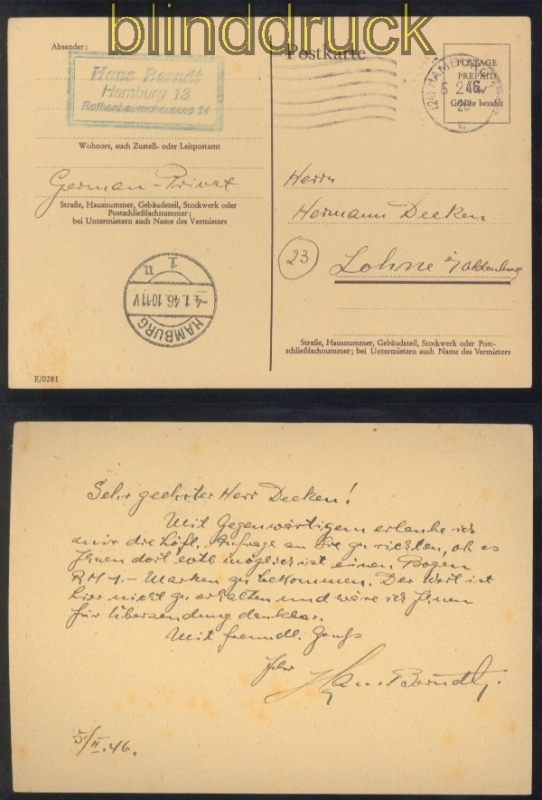 blinddruck
Absender:
Postkarte
POSTAGE
PREPAID
Gebühr bezahlt
Hans Berndt
Hamburg 13
HAMBURG
5 2 46
Wohnort, auch Zustell- oder Leitpostamt
German-Privat
Straße, Hausnummer, Gebäudeteil, Stockwerk oder
Postschließfachnummer;
bei Untermietern auch Name des Vermieters
Herrn
Hermann Deeken
23 Lohne i/Oldenburg
HAMBURG
-4.1.46.10-11V
1
u
Straße, Hausnummer, Gebäudeteil, Stockwerk oder Post-
schließfachnummer; bei Untermietern auch Name des Vermieters
E/0281
Sehr geehrter Herr Deeken!
Mit Gegenwärtigem erlaube ich
mir die höfl. Anfrage an Sie zu richten, ob es
Ihnen dort evtl. möglich ist einen Bogen
RM 1.- Marken zu bekommen. Der Wert ist
hier nicht zu erhalten und wäre ich Ihnen
für Übersendung dankbar.
Mit freundl. Gruß
Ihr Hans Berndt
5/II.46.